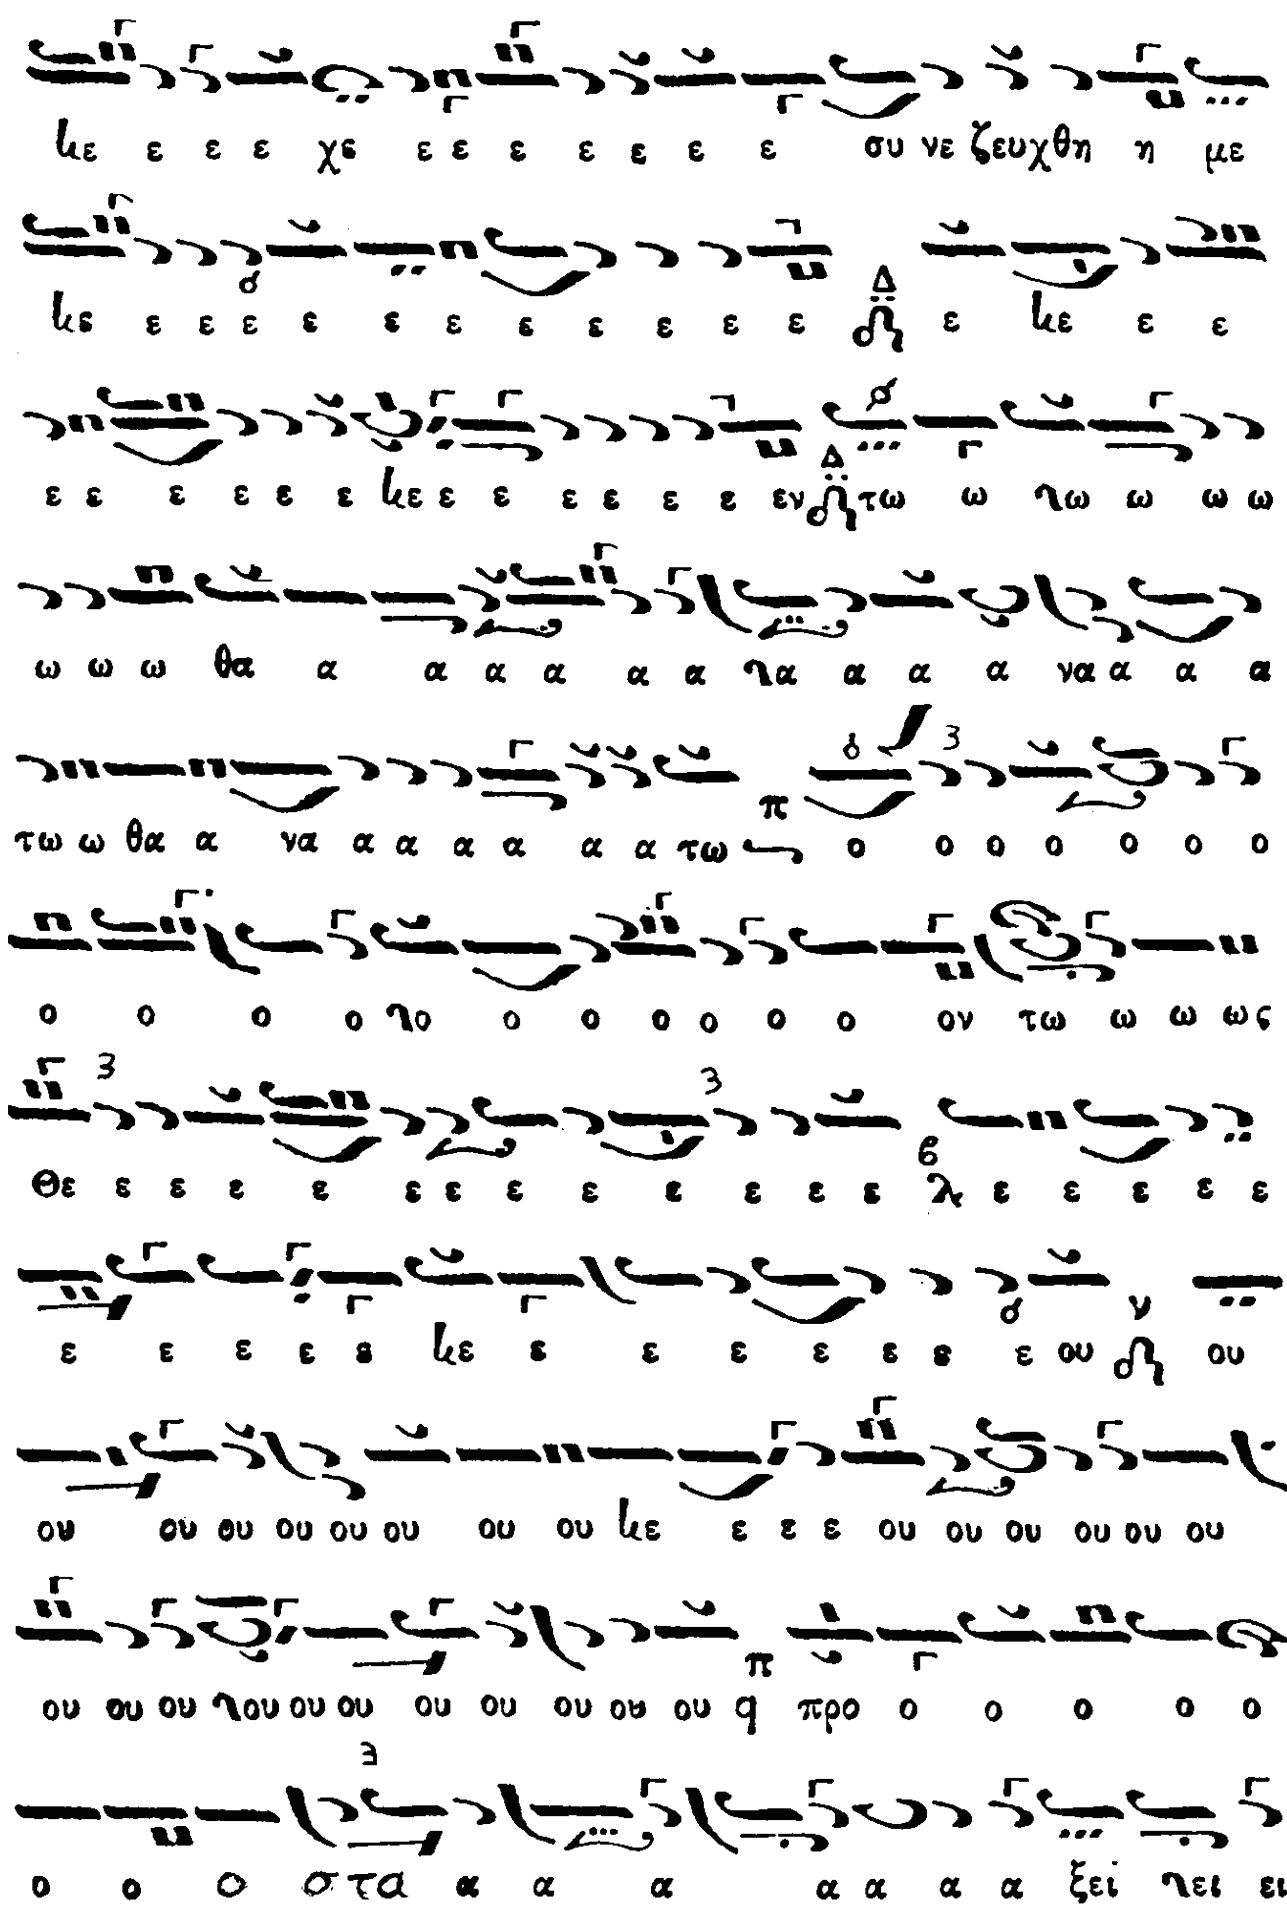 κε ε ε ε χε ε ε ε ε ε ε ε συ νε ζευχθη η με
κε ε ε ε ε ε ε ε ε ε ε ε Δ ε κε ε ε
ε ε ε ε ε ε κε ε ε ε ε ε ε εν Δ τω ω γω ω ω ω
ω ω ω θα α α α α α α γα α α α να α α α
τω ω θα α να α α α α α α τω π ο ο ο ο ο ο ο
ο ο ο ο γο ο ο ο ο ο ο ον τω ω ω ως
Θε ε ε ε ε ε ε ε ε ε ε ε ε β λ ε ε ε ε ε
ε ε ε ε ε κε ε ε ε ε ε ε ε ου ν ου
ου ου ου ου ου ου ου ου κε ε ε ε ου ου ου ου ου ου
ου ου ου γου ου ου ου ου ου ου ου π q προ ο ο ο ο ο
ο ο ο στα α α α α α α α ξει γει ει